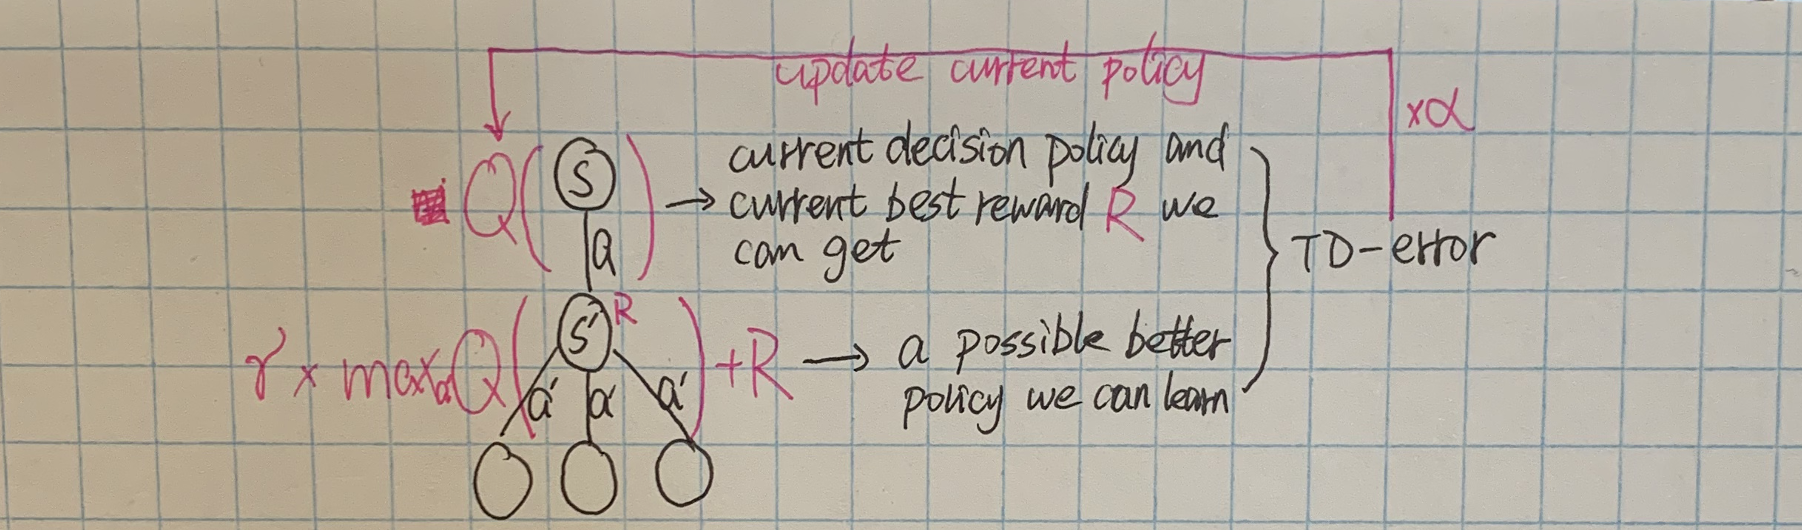 update current policy
×α
Q(S) → current decision policy and
current best reward R we
can get
a
TD-error
S' R
γ × maxₐQ( ) + R → a possible better
policy we can learn
a' a' a'